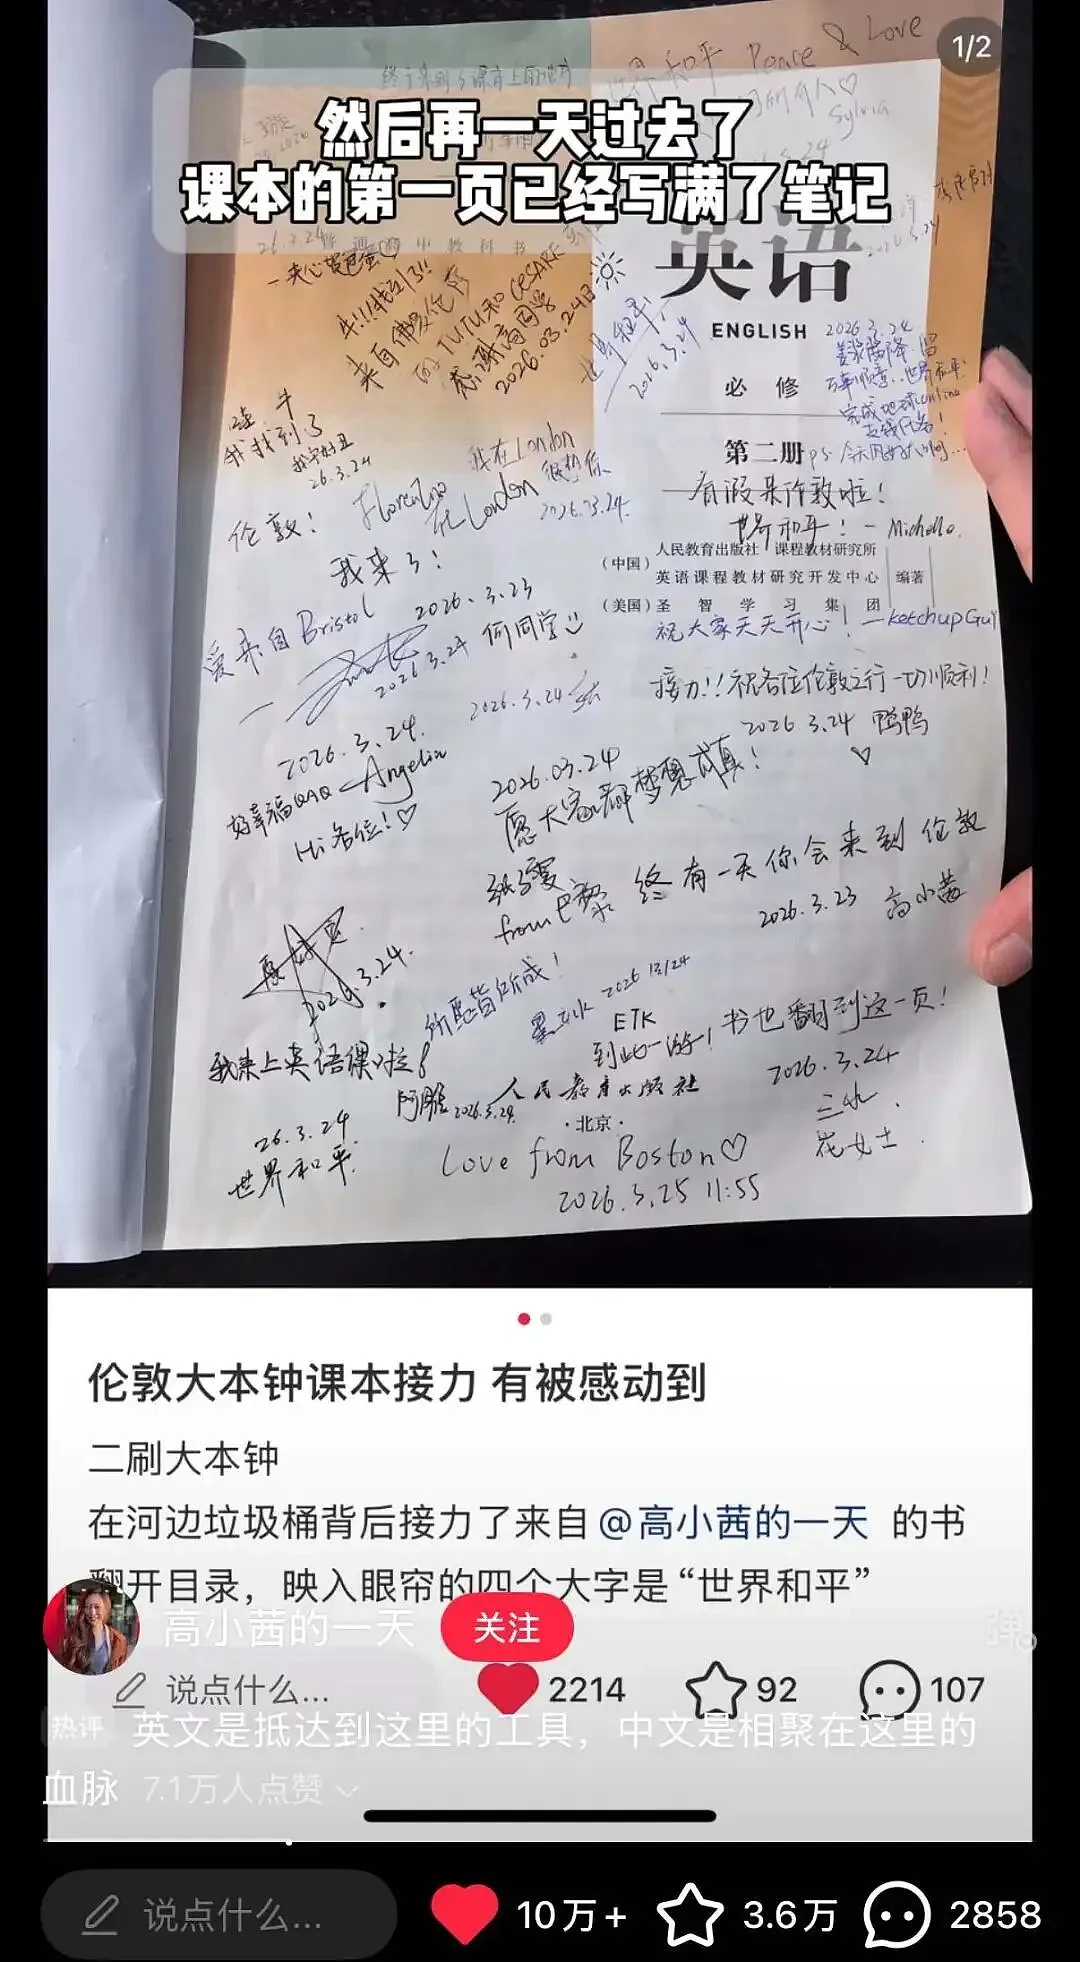 1/2
然后再一天过去了
课本的第一页已经写满了笔记
世界和平 Peace & Love
Sylvia
26.3.24
牛!!!找到了!!
来自佛罗伦萨
的TUTU和CESARE
感谢高同学
2026.03.24日
世界和平!
2026.3.24
英语
ENGLISH
必修
第二册
2026.3.24
世界和平
哇 牛
我找到了
26.3.24
伦敦!
我来了!
2026.3.23
我在London
很想你
2026.03.24
Florenzo
在London
有假来伦敦啦!
世界和平! — Michelle.
人民教育出版社 课程教材研究所
(中国)
英语课程教材研究开发中心
编著
(美国)圣智学习集团
祝大家天天开心! —ketchupGuy
爱来自Bristol
2026.3.24
何同学
2026.3.24
接力!!祝各位伦敦之行一切顺利!
2026.3.24 鸭鸭
2026.3.24.
好幸福QAQ —Angelin
Hi 各位!♡
2026.03.24
愿大家都梦想成真!
from 巴黎
终有一天你会来到伦敦
2026.3.23 高小茜
2026.3.24.
所愿皆所成!
ETK
到此一游!
书也翻到这一页!
2026.3.24
我来上英语课啦!
2026.3.24
人民教育出版社
·北京·
26.3.24
世界和平.
Love from Boston♡
2026.3.25 11:55
伦敦大本钟课本接力 有被感动到
二刷大本钟
在河边垃圾桶背后接力了来自@高小茜的一天 的书
翻开目录，映入眼帘的四个大字是“世界和平”
高小茜的一天
关注
说点什么...
2214
92
107
热评 英文是抵达到这里的工具，中文是相聚在这里的
血脉 7.1万人点赞
说点什么...
10万+
3.6万
2858